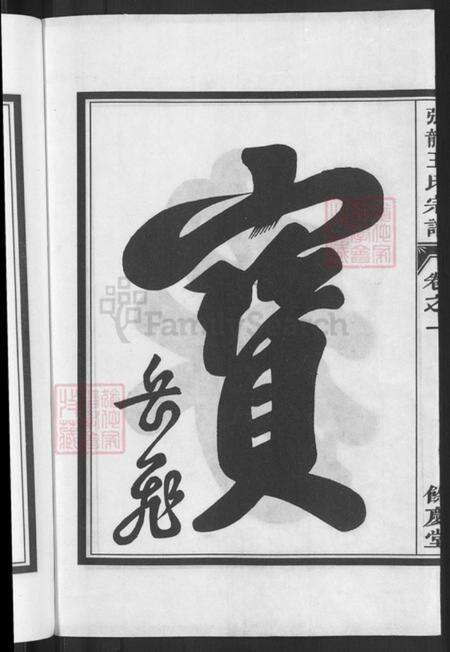 弢龍王氏宗譜
卷之一
餘慶堂
寶
岳飛
FamilySearch